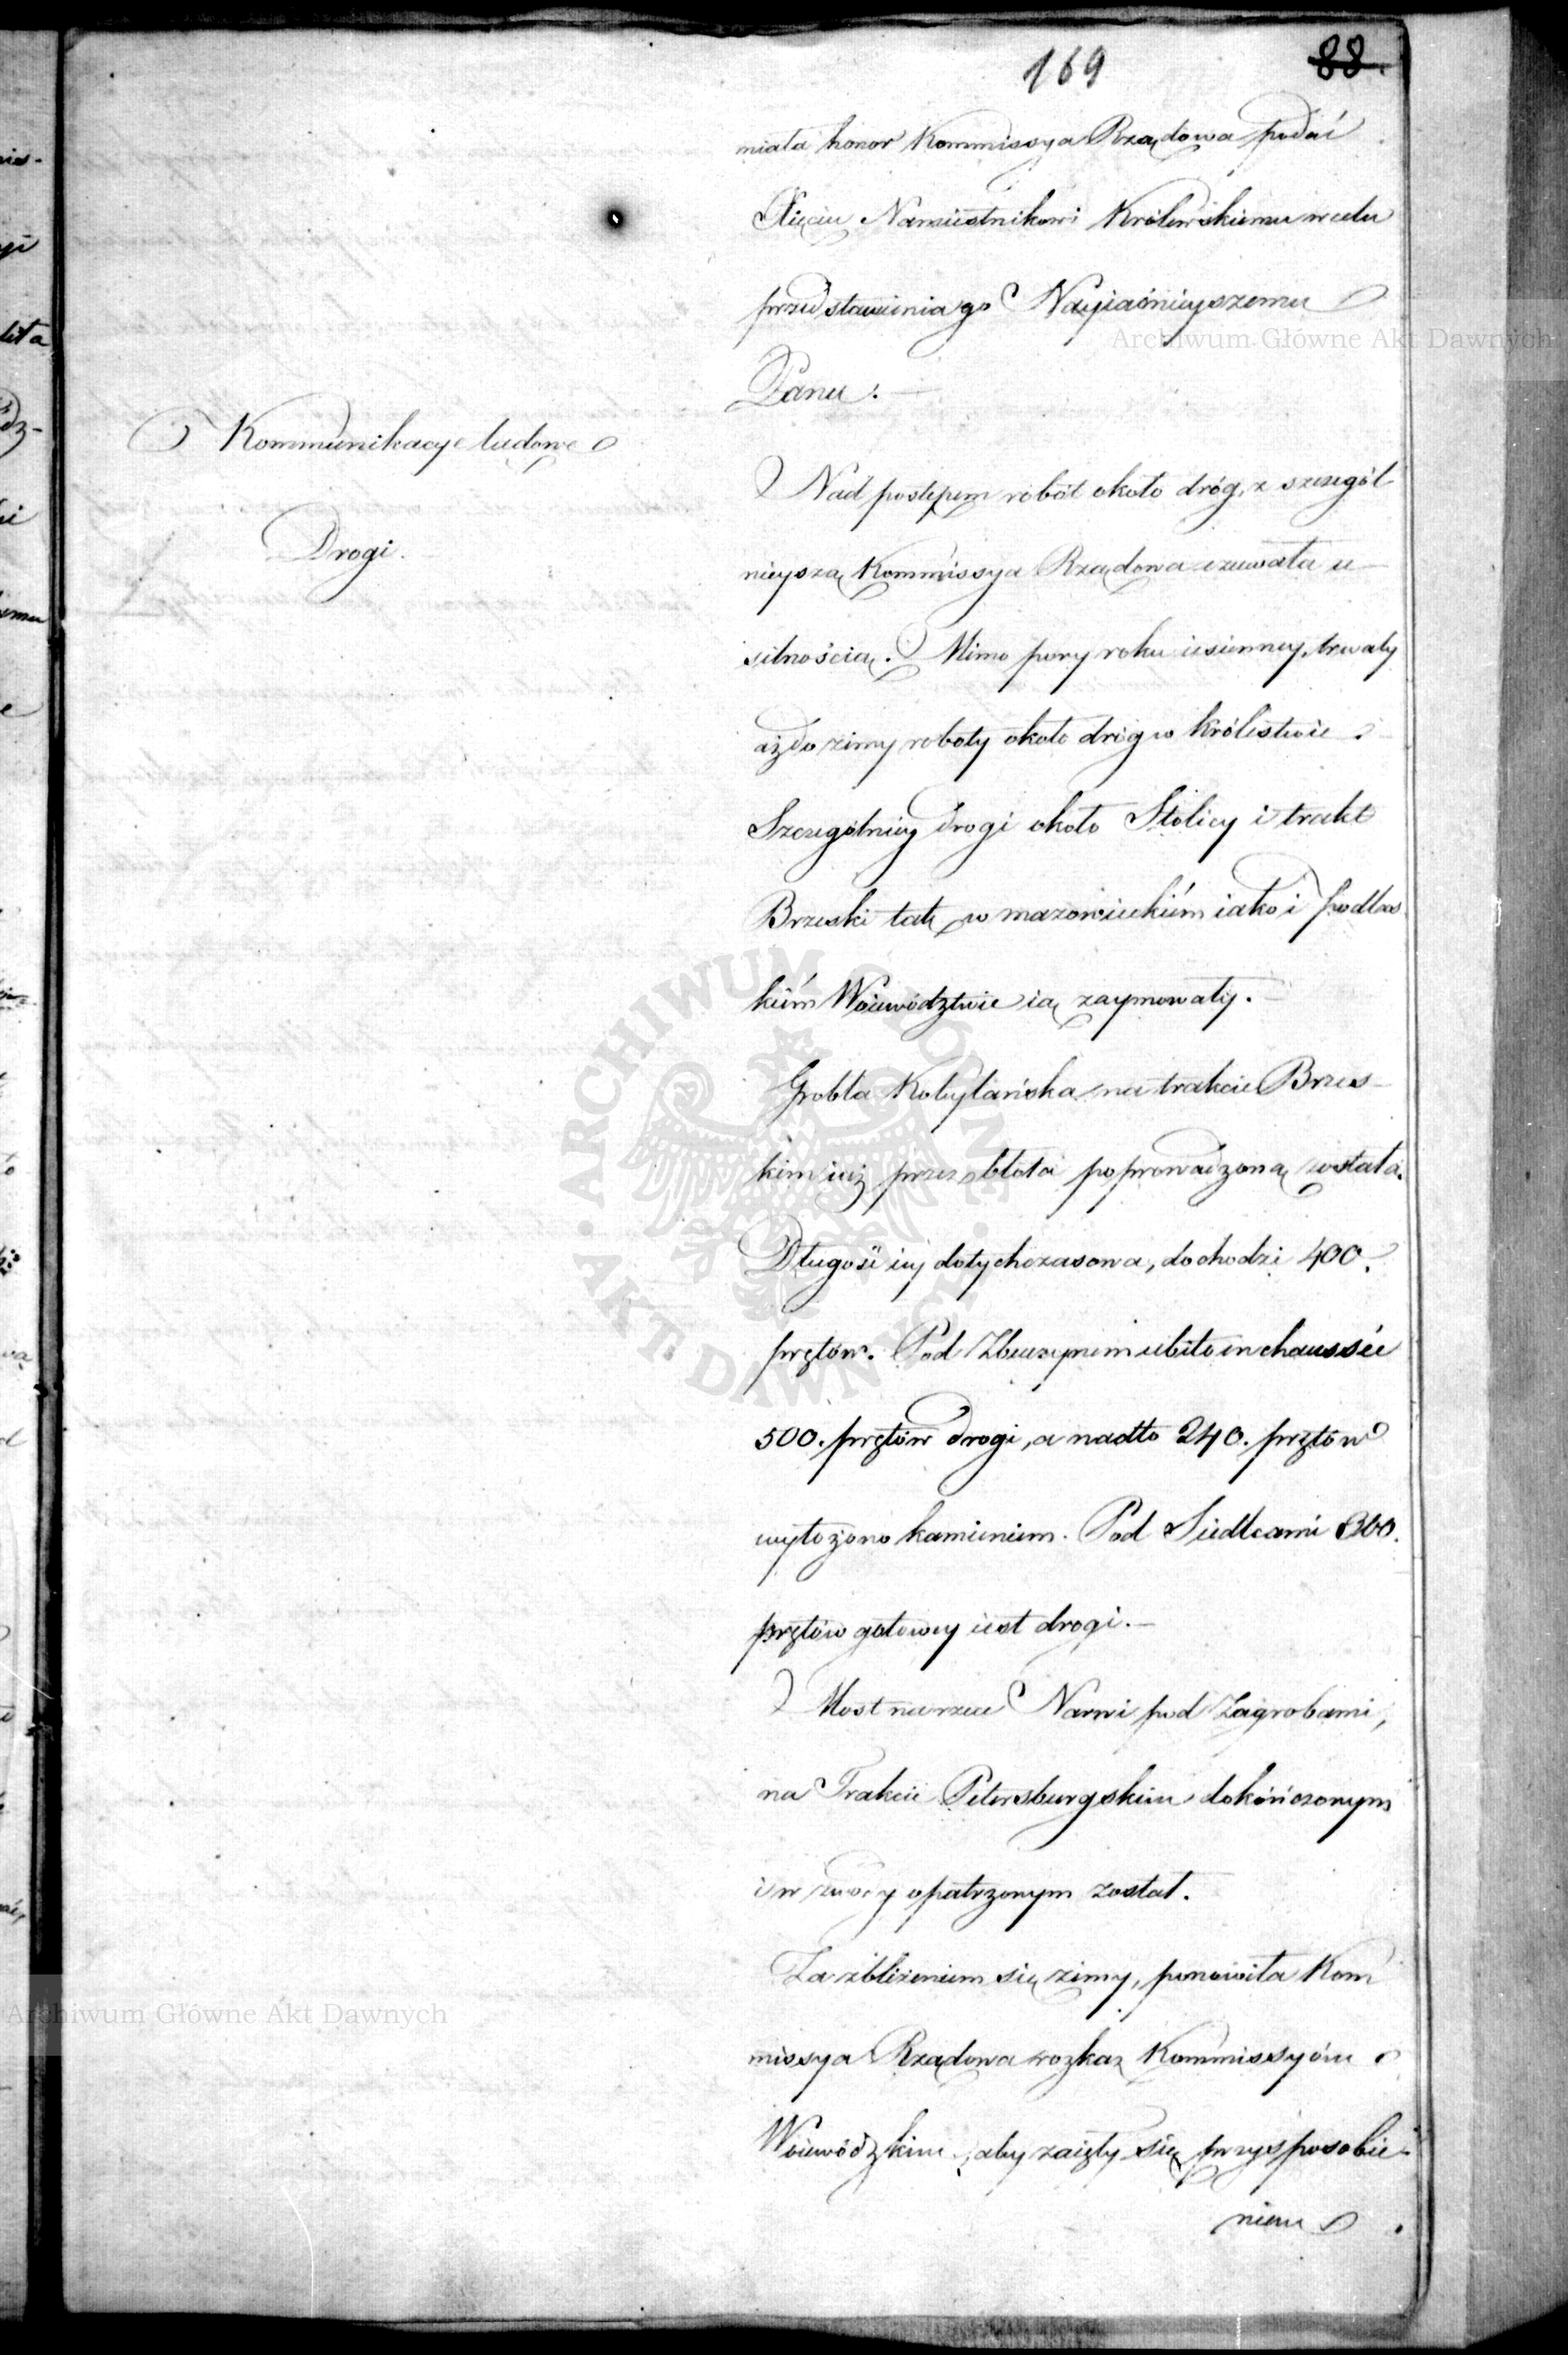 169 88.
miała honor Kommissya Rządowa podać
Xięciu Namiestnikowi Królewskiemu w celu
przedstawienia go Nayiaśnieyszemu
Panu. —
Kommunikacye lądowe
Drogi.
Nad postępem robót około dróg, z szczegól
nieyszą Kommissya Rządowa czuwała u-
silnością. Mimo pory roku iesienney, trwały
aż do zimy roboty około dróg w królestwie.
Szczególniey drogi około Stolicy i trakt
Brzeski tak w mazowieckiém iako i podlas
kiém Woiewództwie ią zaymowały. —
Grobla Kobylańska na trakcie Brzes-
kim iuż przez błota poprowadzoną została.
Długość iey dotychczasowa, dochodzi 400.
prętów. Pod Zbuczynem ubito en chaussée
500. prętów drogi, a nadto 240. prętów
wyłożono kamieniem. Pod Siedlcami 300.
prętów gotowey iest drogi. —
Most na rzece Narwi pod Zagrobami,
na Trakcie Petersburgskim dokończonym
i w opatrzonym został.
Za zbliżeniem się zimy, ponowiła Kom
missya Rządowa rozkaz Kommissyóm
Woiewódzkim, aby zaięły się przysposobie-
niem
Archiwum Główne Akt Dawnych
Archiwum Główne Akt Dawnych
ARCHIWUM GŁÓWNE AKT DAWNYCH